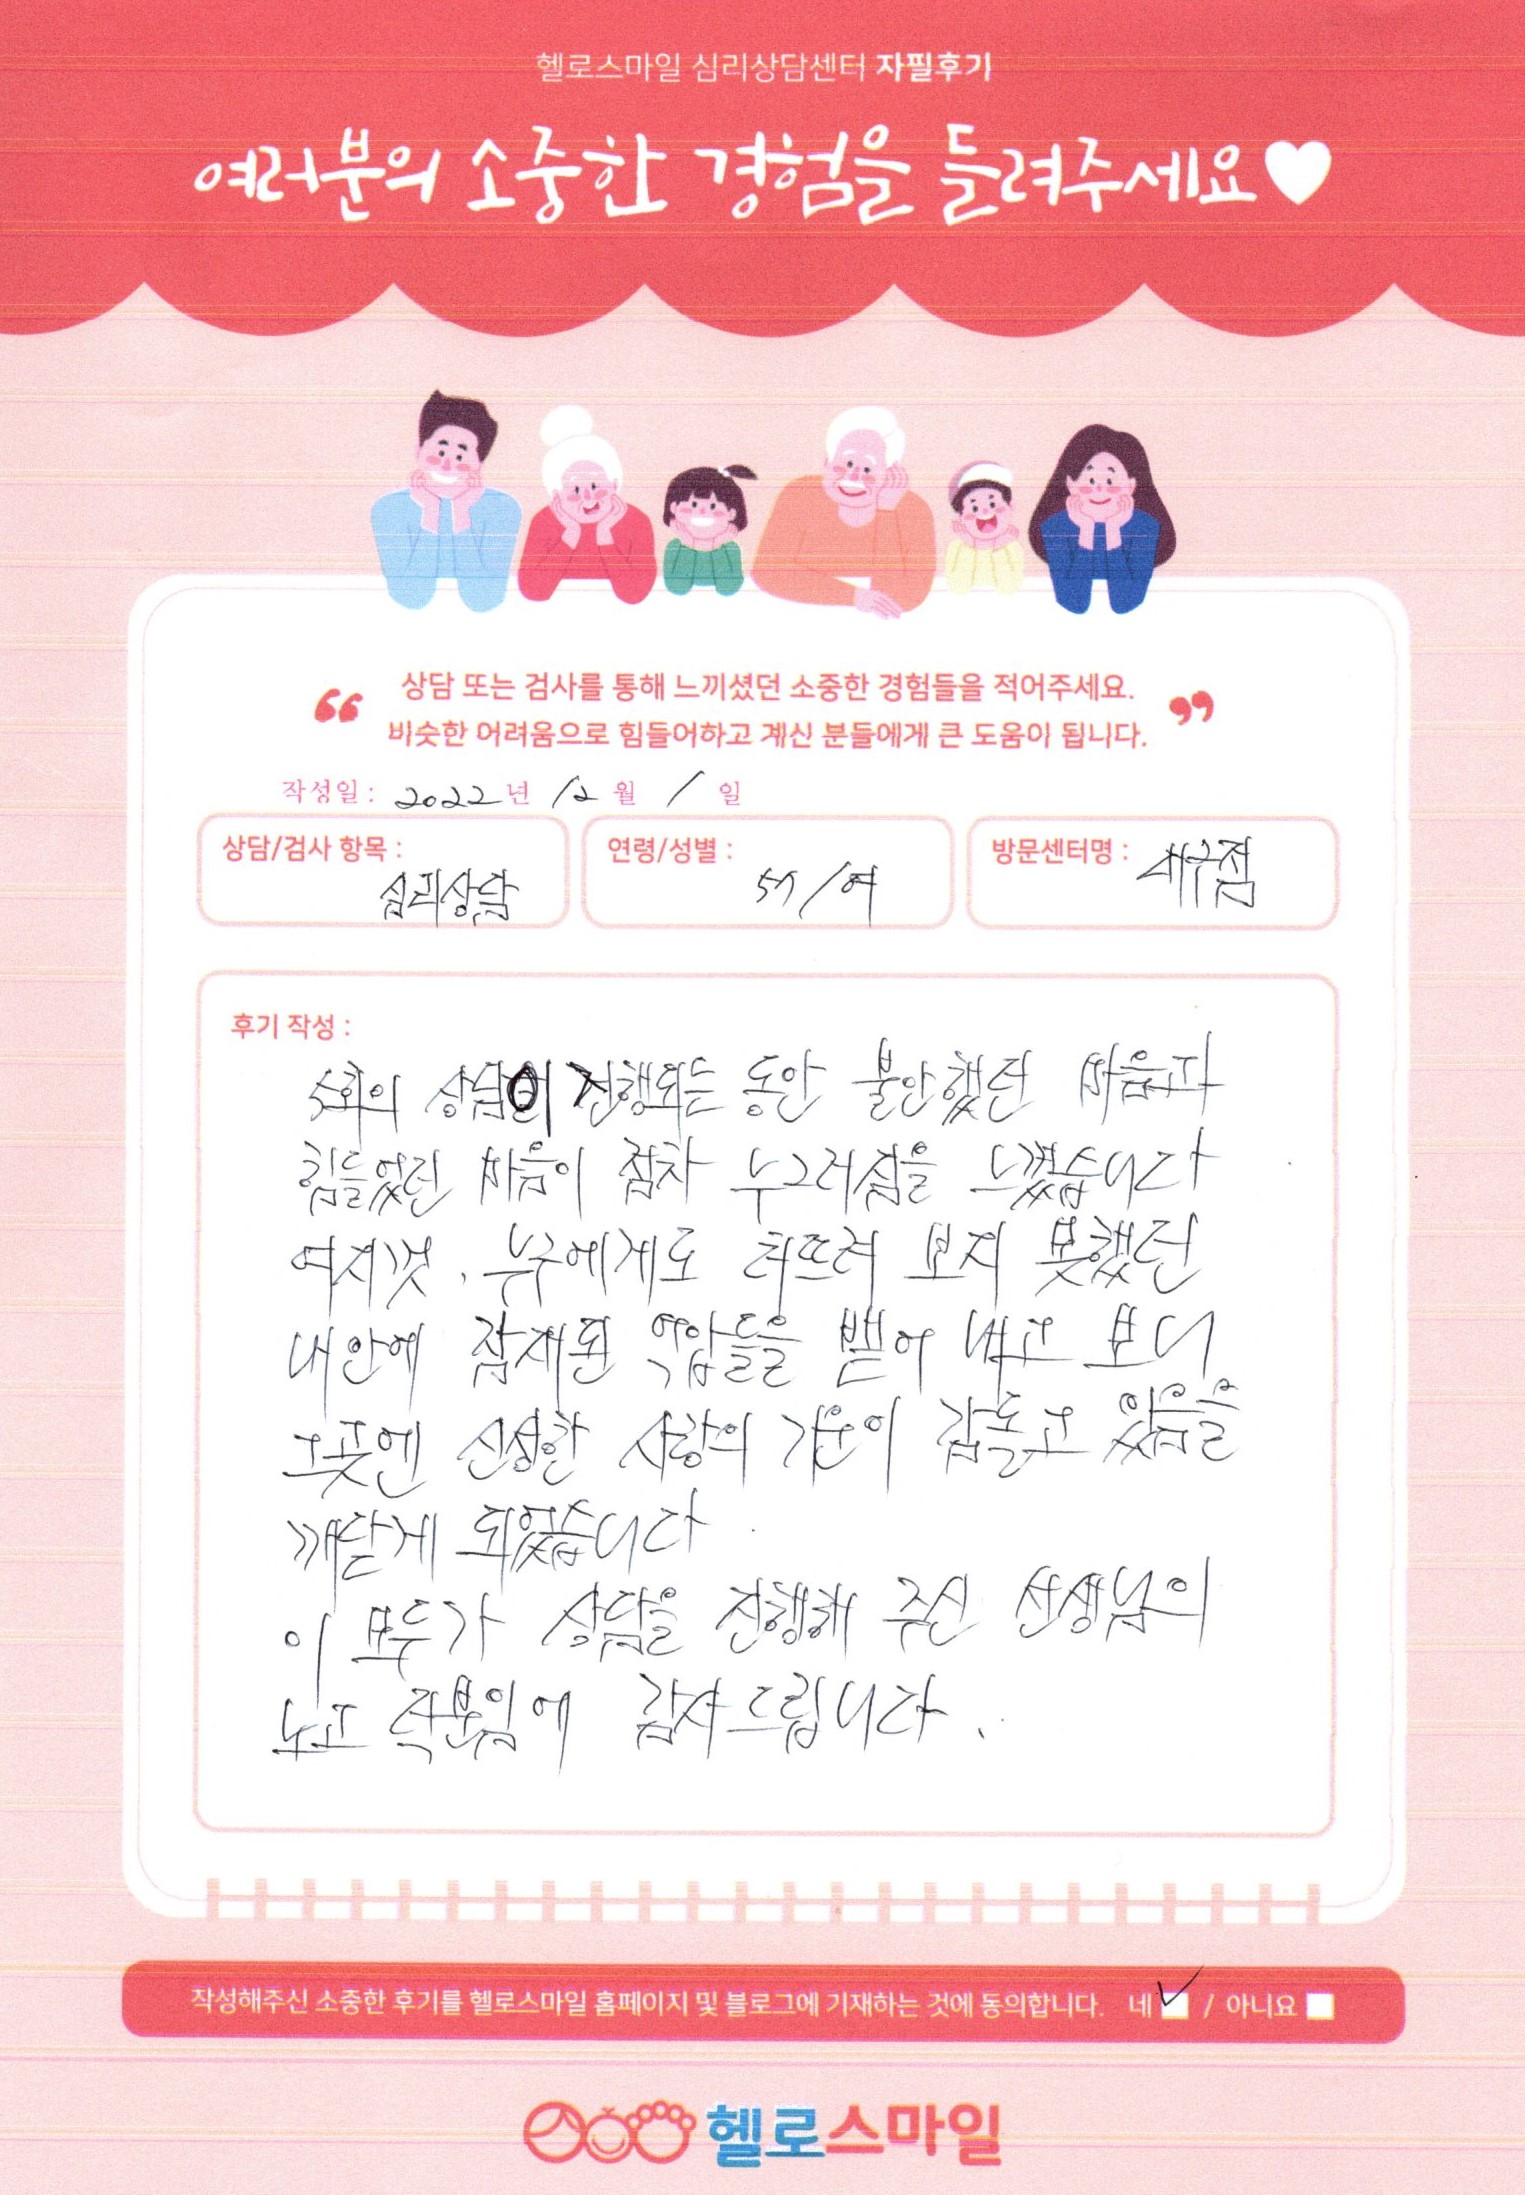 헬로스마일 심리상담센터 자필후기
여러분의 소중한 경험을 들려주세요♥
“ 상담 또는 검사를 통해 느끼셨던 소중한 경험들을 적어주세요.
비슷한 어려움으로 힘들어하고 계신 분들에게 큰 도움이 됩니다. ”
작성일 : 2022 년 12 월 1 일
상담/검사 항목 : 심리상담
연령/성별 : 57/여
방문센터명 : 대구점
후기 작성 :
5회의 상담이 진행되는 동안 불안했던 마음과
힘들었던 마음이 점차 누그러짐을 느꼈습니다
여지껏, 누구에게도 터뜨려 보지 못했던
내 안에 잠재된 억압들을 뱉어 내고 보니
그곳엔 신성한 사랑의 기운이 감돌고 있음을
깨닫게 되었습니다.
이 모두가 상담을 진행해 주신 선생님의
노고 덕분임에 감사드립니다.
작성해주신 소중한 후기를 헬로스마일 홈페이지 및 블로그에 기재하는 것에 동의합니다. 네 ✓ / 아니요
헬로스마일